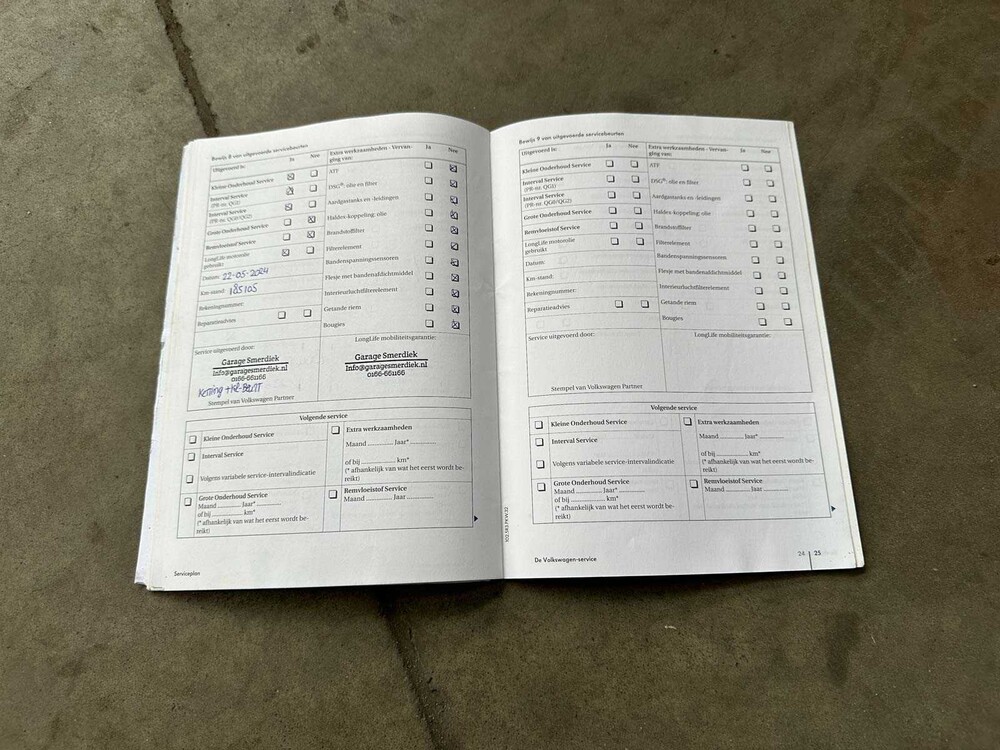 Bewijs 8 van uitgevoerde servicebeurten
Uitgevoerd is: Ja Nee
Kleine Onderhoud Service
Interval Service
(PR-nr. QG1)
Interval Service
(PR-nr. QG0/QG2)
Grote Onderhoud Service
Remvloeistof Service
LongLife motorolie
gebruikt
Datum: 22-05-2024
Km-stand: 185105
Rekeningnummer:
Reparatieadvies
Extra werkzaamheden - Vervan- Ja Nee
ging van:
ATF
DSG®: olie en filter
Aardgastanks en -leidingen
Haldex-koppeling: olie
Brandstoffilter
Filterelement
Bandenspanningssensoren
Flesje met bandenafdichtmiddel
Interieurluchtfilterelement
Getande riem
Bougies
Service uitgevoerd door:
Garage Smerdiek
Info@garagesmerdiek.nl
0166-661166
Stempel van Volkswagen Partner
LongLife mobiliteitsgarantie:
Garage Smerdiek
Info@garagesmerdiek.nl
0166-661166
Volgende service
Kleine Onderhoud Service
Interval Service
Volgens variabele service-intervalindicatie
Grote Onderhoud Service
Maand ............ Jaar* ............
of bij ............ km*
(* afhankelijk van wat het eerst wordt be-
reikt)
Extra werkzaamheden
Maand ............ Jaar* ............
of bij ............ km*
(* afhankelijk van wat het eerst wordt be-
reikt)
Remvloeistof Service
Maand ............ Jaar ............
Serviceplan
Bewijs 9 van uitgevoerde servicebeurten
Uitgevoerd is: Ja Nee
Kleine Onderhoud Service
Interval Service
(PR-nr. QG1)
Interval Service
(PR-nr. QG0/QG2)
Grote Onderhoud Service
Remvloeistof Service
LongLife motorolie
gebruikt
Datum:
Km-stand:
Rekeningnummer:
Reparatieadvies
Extra werkzaamheden - Vervan- Ja Nee
ging van:
ATF
DSG®: olie en filter
Aardgastanks en -leidingen
Haldex-koppeling: olie
Brandstoffilter
Filterelement
Bandenspanningssensoren
Flesje met bandenafdichtmiddel
Interieurluchtfilterelement
Getande riem
Bougies
Service uitgevoerd door:
Stempel van Volkswagen Partner
LongLife mobiliteitsgarantie:
Volgende service
Kleine Onderhoud Service
Interval Service
Volgens variabele service-intervalindicatie
Grote Onderhoud Service
Maand ............ Jaar* ............
of bij ............ km*
(* afhankelijk van wat het eerst wordt be-
reikt)
Extra werkzaamheden
Maand ............ Jaar* ............
of bij ............ km*
(* afhankelijk van wat het eerst wordt be-
reikt)
Remvloeistof Service
Maand ............ Jaar ............
De Volkswagen-service
24 25